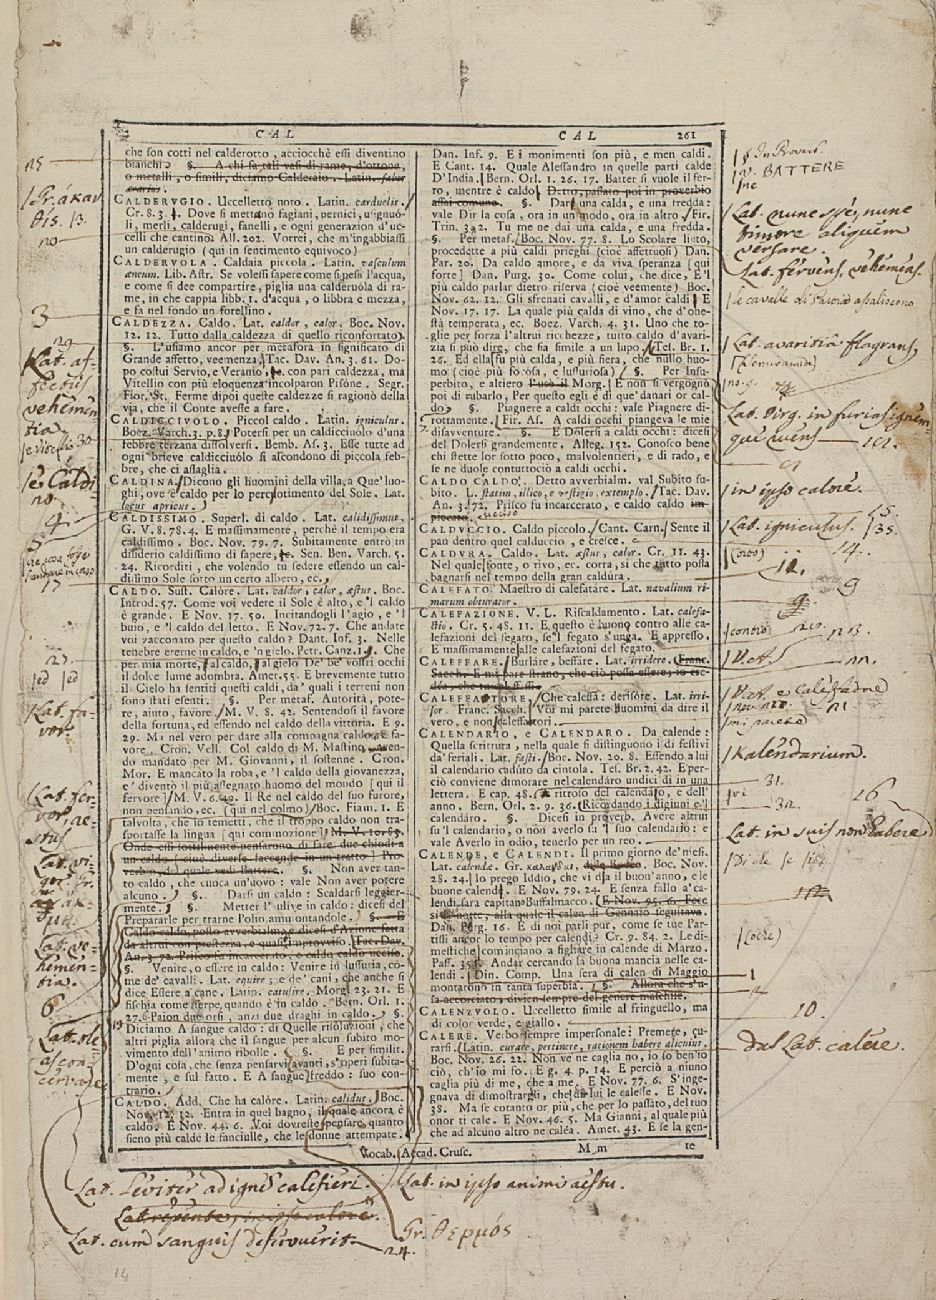 CAL
CAL 261
che son cotti nel calderotto, acciocchè essi diventino
bianchi. §. A chi fa tali vasi di rame, d'ottone,
o metalli, o simili, diciamo Calderaio. Latin. faber
ærarius.
CALDERUGIO. Uccelletto noto. Latin. carduelis.
Cr. 8. 3. 4. Dove si mettano fagiani, pernici, usignuo-
li, merli, calderugi, fanelli, e ogni generazion d'uc-
celli che cantino. All. 202. Vorrei, che m'ingabbiassi
un calderugio (qui in sentimento equivoco)
CALDERVOLA. Caldaia piccola. Latin. vasculum
æneum. Lib. Astr. Se volessi sapere come si pesi l'acqua,
e come si dee compartire, piglia una calderuola di ra-
me, in che cappia libb. 1. d'acqua, o libbra e mezzo,
e fa nel fondo un forellino.
CALDEZZA. Caldo. Lat. caldor, calor. Boc. Nov.
12. 12. Tutto dalla caldezza di quello riconfortato)
§. L'usiamo ancor per metafora in significato di
Grande affetto, veemenza. Tac. Dav. An. 3. 61. Do-
po costui Servio, e Veranio, te. con pari caldezza, ma
Vitellio con più eloquenza incolparon Pisòne. Segr.
Fior. St. Ferme dipoi queste caldezze si ragionò della
via, che il Conte avesse a fare.
CALDICCIVOLO. Piccol caldo. Latin. igniculus.
Boez. Varch. 3. p. 8. Potersi per un caldicciuòlo d'una
febbre terzana dissolversi. Bemb. As. 3. Esse tutte ad
ogni breve caldicciuòlo si ascondono di piccola feb-
bre, che ci assaglia.
CALDINA. Dicono gli huomini della villa, a Que' luo-
ghi, ove è caldo per lo percotimento del Sole. Lat.
locus apricus.
CALDISSIMO. Superl. di caldo. Lat. calidissimus.
G. V. 8. 78. 4. E massimamente, perchè il tempo era
caldissimo. Boc. Nov. 79. 7. Subitamente entrò in
disiderio caldissimo di sapere, te. Sen. Ben. Varch. 5.
24. Ricorditi, che volendo tu sedere essendo un cal-
dissimo Sole sotto un certo albero, ec.
CALDO. Sust. Calóre. Lat. caldor, calor, æstus. Boc.
Introd. 57. Come voi vedere il Sole è alto, e 'l caldo
è grande. E Nov. 17. 50. Incitandogli l'agio, e 'l
buio, e 'l caldo del letto. E Nov. 72. 7. Che andate
voi zacconato per questo caldo? Dant. Inf. 3. Nelle
tenebre eterne in caldo, e 'n gielo. Petr. Canz. 1. Che
per mia morte, al caldo, al gielo De' be' vostri occhi
il dolce lume adombra. Amet. 55. E brevemente tutto
il Cielo ha sentiti questi caldi, da' quali i terreni non
sono stati esenti. §. Per metaf. Autorità, pote-
re, aiuto, favore. M. V. 8. 42. Sentendosi il favore
della fortuna, ed essendo nel caldo della vittoria. E 9.
29. Ma nel vero per dare alla compagna caldo, e fa-
vore. Cron. Vell. Col caldo di M. Mastino, aven-
do mandato per M. Giovanni, il sostenne. Cron.
Mor. E mancato la roba, e 'l caldo della giovanezza,
e' diventò il più assegnato huomo del mondo (qui il
fervore) M. V. 6. 49. Il Re nel caldo del suo furore,
non pensando, ec. (qui nel colmo) Boc. Fiam. 1. E
talvolta, che io temetti, che il troppo caldo non tra-
sportasse la lingua (qui commozione) M. V. 10. 85.
Onde essi sottilmente pensarono di fare due chiodi a
un caldo (cioè diverse faccende in un tratto) Pro-
verbio, del quale vedi Battere. §. Non aver tan-
to caldo, che cuoca un'uovo: vale Non aver potere
alcuno. §. Darsi un caldo: Scaldarsi leggier-
mente. §. Metter l'ulive in caldo: dicesi del
Prepararle per trarne l'olio, ammontandole. §. E
Caldo caldo, posto avverbialm. e dicesi d'Azione fatta
da altrui con prestezza, e quasi improvviso. Tac. Dav.
An. 3. 72. Prisco fu incarcerato, e caldo caldo ucciso.
§. Venire, o essere in caldo: Venire in lussuria, co-
me de' cavalli. Lat. equire; e de' cani, che anche si
dice Essere a cane. Latin. catulire. Morg. 23. 21. E
fischia come serpe, quando è 'n caldo. Bern. Orl. 1.
27. 6. Paion due orsi, anzi due draghi in caldo. §.
Diciamo A sangue caldo: di Quelle risoluzioni, che
altri piglia allora che il sangue per alcun subito mo-
vimento dell'animo ribolle. §. E per similit.
D'ogni cosa, che senza pensarvi avanti, s'operi subita-
mente, e sul fatto. E A sangue freddo: suo con-
trario.
CALDO. Add. Che ha calóre. Latin. calidus. Boc.
Nov. 12. 12. Entra in quel bagno, il quale ancora è
caldo. E Nov. 44. 6. Voi dovreste pensare, quanto
sieno più calde le fanciulle, che le donne attempate.
Dan. Inf. 9. E i monimenti son più, e men caldi.
E Cant. 14. Quale Alessandro in quelle parti calde
D'India. Bern. Orl. 1. 26. 17. Batter si vuole il fer-
ro, mentre è caldo. Detto, passato poi in proverbio
assai comune. §. Dar una calda, e una fredda:
vale Dir la cosa, ora in un modo, ora in altro. Fir.
Trin. 3. 2. Tu me ne dai una calda, e una fredda.
§. Per metaf. Boc. Nov. 77. 8. Lo Scolare lieto,
procedette a più caldi prieghi (cioè affettuosi) Dan.
Par. 20. Da caldo amore, e da viva speranza (qui
forte) Dan. Purg. 30. Come colui, che dice, E 'l
più caldo parlar dietro riserva (cioè veemente) Boc.
Nov. 62. 12. Gli sfrenati cavalli, e d'amor caldi. E
Nov. 17. 17. La quale più calda di vino, che d'one-
stà temperata, ec. Boez. Varch. 4. 31. Uno che to-
glie per forza l'altrui ricchezze, tutto caldo d'avari-
zia si può dire, che sia simile a un lupo. Tes. Br. 1.
26. Ed ella fu più calda, e più fiera, che nullo huo-
mo (cioè più focosa, e lussuriosa) §. Per Insu-
perbito, e altiero l'usò il Morg. E non si vergognò
poi di rubarlo, Per questo egli è di que' danari or cal-
do. §. Piagnere a caldi occhi: vale Piagnere di-
rottamente. Fir. As. A caldi occhi piangeva le mie
disavventure. §. E Dolersi a caldi occhi: dicesi
del Dolersi grandemente. Alleg. 152. Conosco bene
chi stette lor sotto poco, malvolentieri, e di rado, e
se ne duole contuttociò a caldi occhi.
CALDO CALDO. Detto avverbialm. val Subito su-
bito. L. statim, illico, e vestigio, extemplo. Tac. Dav.
An. 3. 72. Prisco fu incarcerato, e caldo caldo im-
piccato. ucciso
CALDUCCIO. Caldo piccolo. Cant. Carn. Sente il
pan dentro quel calduccio, e cresce.
CALDURA. Caldo. Lat. æstus, calor. Cr. 11. 43.
Nel quale fonte, o rivo, ec. corra, sì che tutto possa
bagnarsi nel tempo della gran caldùra.
CALEFATO. Maestro di calefatare. Lat. navalium ri-
marum obturator.
CALEFAZIONE. V. L. Riscaldamento. Lat. calefa-
ctio. Cr. 5. 48. 11. E questo è buono contro alle ca-
lefazioni del fegato, se 'l fegato s'unga. E appresso.
E massimamente alle calefazioni del fegato.
CALEFFARE. Burlare, beffare. Lat. irridere. Franc.
Sacch. E mi pare strano, che ciò possa essere; io cre-
do, che tu caleffi.
CALEFFATORE. Che caleffa: derisóre. Lat. irri-
sor. Franc. Sacch. Voi mi parete huomini da dire il
vero, e non caleffatori.
CALENDARIO, e CALENDARO. Da calende:
Quella scrittura, nella quale si distinguono i dì festivi
da' feriali. Lat. fasti. Boc. Nov. 20. 8. Essendo a lui
il calendario caduto da cintola. Tes. Br. 2. 42. E per-
ciò conviene dimorare nel calendáro undici dì in una
lettera. E cap. 48. a ritroso del calendaro, e dell'
anno. Bern. Orl. 2. 9. 36. Ricordando i digiuni e 'l
calendáro. §. Dicesi in proverb. Avere altrui
su 'l calendario, o non averlo su 'l suo calendario: e
vale Averlo in odio, tenerlo per un reo.
CALENDE, e CALENDI. Il primo giorno de' mesi.
Lat. calendæ. Gr. καλάνδαι. dalle Ruffo. Boc. Nov.
28. 24. Io prego Iddio, che vi dia il buon'anno, e le
buone calendi. E Nov. 79. 24. E senza fallo a' ca-
lendi sarà capitano Buffalmacco. E Nov. 95. 6. Fece
sì la notte, alla quale il calen di Gennaio seguitava.
Dan. Purg. 16. E di noi parli pur, come se tue Par-
tissi ancor lo tempo per calendi? Cr. 9. 84. 2. Le di-
mestiche cominciano a figliare in calende di Marzo.
Pass. 356. Andar cercando la buona mancia nelle ca-
lendi. Din. Comp. Una sera di calen di Maggio
montarono in tanta superbia. §. Allora che s'u-
sa accorciato; divien sempre del genere maschile.
CALENZVOLO. Uccelletto simile al fringuello, ma
di color verde, e giallo.
CALERE. Verbo sempre impersonale: Premere, cu-
rarsi. Latin. curare, pertinere, rationem habere alicuius.
Boc. Nov. 26. 22. Non ve ne caglia no, io so ben'io
ciò, ch'io mi fo. E g. 4. p. 14. E perciò a niuno
caglia più di me, che a me. E Nov. 77. 6. S'inge-
gnava di dimostrargli, che di lui le calesse. E Nov.
38. Ma se cotanto or più, che per lo passato, del tuo
onor ti cale. E Nov. 46. 5. Ma Gianni, al quale più
che ad alcuno altro ne caléa. Amet. 43. E se la gen-
Vocab. Accad. Crusc. M m te
25
no
3
29
Lat. af-
fectus
vehemen
tia.
30
4
5
27
Lat. fa-
vor.
Lat. fer-
vor, æ-
stus
Lat. ve-
hemen-
tia.
6
13
§ In Prover.
v. BATTERE
Lat. nunc spe, nunc
timore aliquem
versare.
Lat. fervens, vehemens.
Lat. avaritia flagrans,
Lat. Virg. in furias ignem
que ruens 101.
in ipso calore.
25.
Lat. igniculus. 35.
14.
12.
9
9
contro
Kalendarium.
31.
32.
16
Lat. in suis non habere
1
2
10.
Dal Lat. calere.
Lat. Leviter ad ignes calefieri.
Lat. in ipso animi æstu.
Lat. repente, in ipso calore.
Gr. θερμός
Lat. cum sanguis deferverit.
24.
14